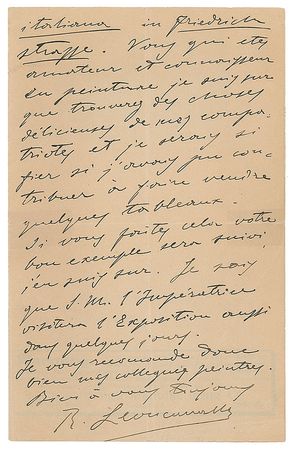 italiana in Friedrich
strasse. Vous qui etes
amateur et connoisseur
en peinture je suis sur
que trouverez des choses
délicieuses de mes compa-
triotes et je serais si
fier si j'avais pu con-
tribuer à faire vendre
quelques tableaux.
Si vous faites cela votre
bon exemple sera suivi
j'en suis sur. Je sais
que S. M. l'Impératrice
visitera l'Exposition aussi
dans quelques jours.
Je vous recomande donc
bien mes collegues peintres.
Bien à vous toujours
R. Leoncavallo